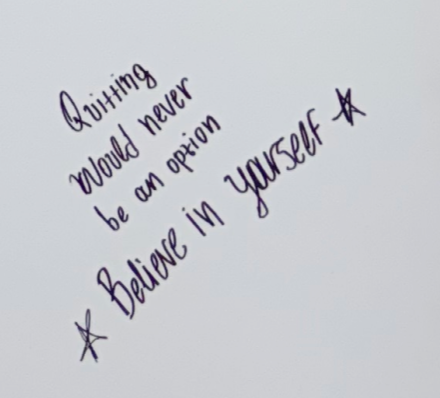 Quitting
Would never
be an option
☆ Believe in yourself ☆